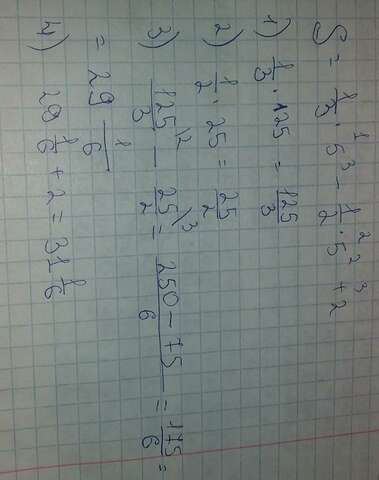 S = 1/3 · 5³ − 1/2 · 5² + 2
1 2 3
1) 1/3 · 125 = 125/3
2) 1/2 · 25 = 25/2
3) 125/3 \2 − 25/2 \3 = 250 − 75/6 = 175/6 =
= 29 1/6
4) 29 1/6 + 2 = 31 1/6